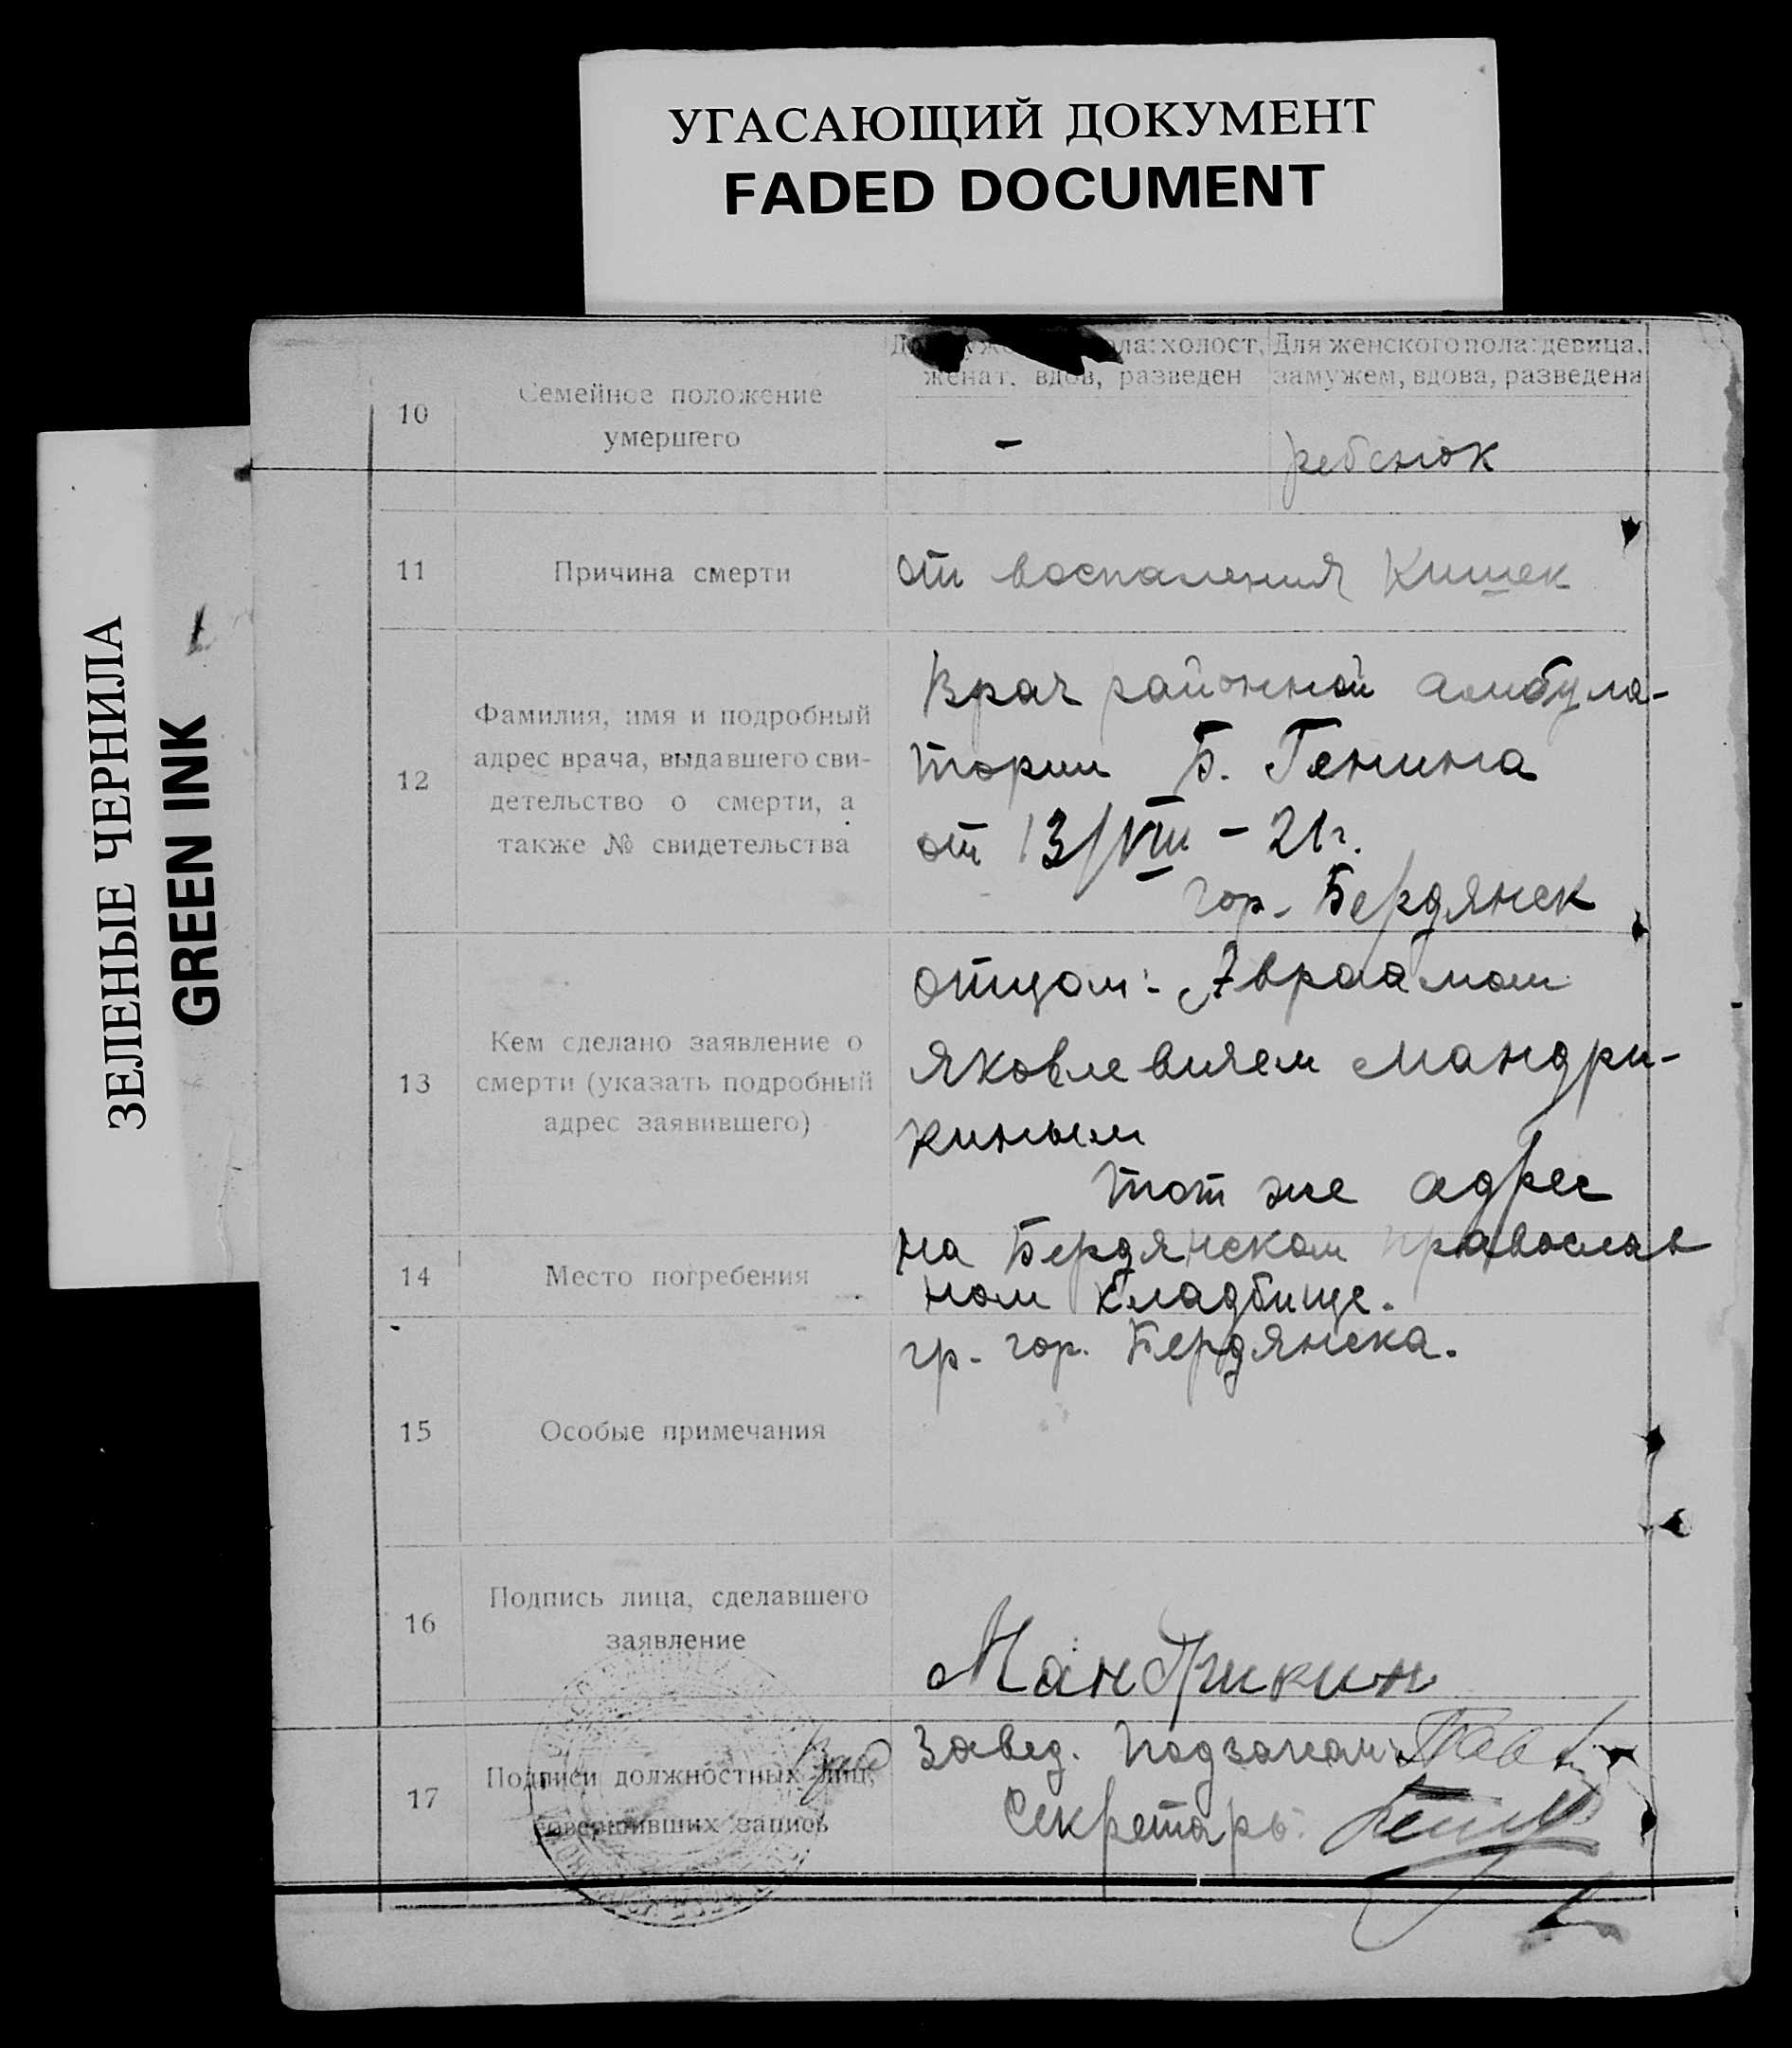 УГАСАЮЩИЙ ДОКУМЕНТ
FADED DOCUMENT
ЗЕЛЕНЫЕ ЧЕРНИЛА
GREEN INK
10
Семейное положение
умершего
ла: холост,
женат, вдов, разведен
Для женского пола: девица,
замужем, вдова, разведена
-
ребенок
11
Причина смерти
от воспаления кишек
12
Фамилия, имя и подробный
адрес врача, выдавшего сви-
детельство о смерти, а
также № свидетельства
Врач районной амбула-
тории Б. Генина
от 13/VIII - 21 г.
гор. Бердянск
13
Кем сделано заявление о
смерти (указать подробный
адрес заявившего)
отцом: Авраамом
Яковлевичем Мандри-
киным
тот же адрес
14
Место погребения
на Бердянском православ
ном кладбище.
15
Особые примечания
гр. гор. Бердянска.
16
Подпись лица, сделавшего
заявление
Мандрикин
17
Подписи должностных лиц,
совершивших запись
Завед. Подзагсом
Секретарь